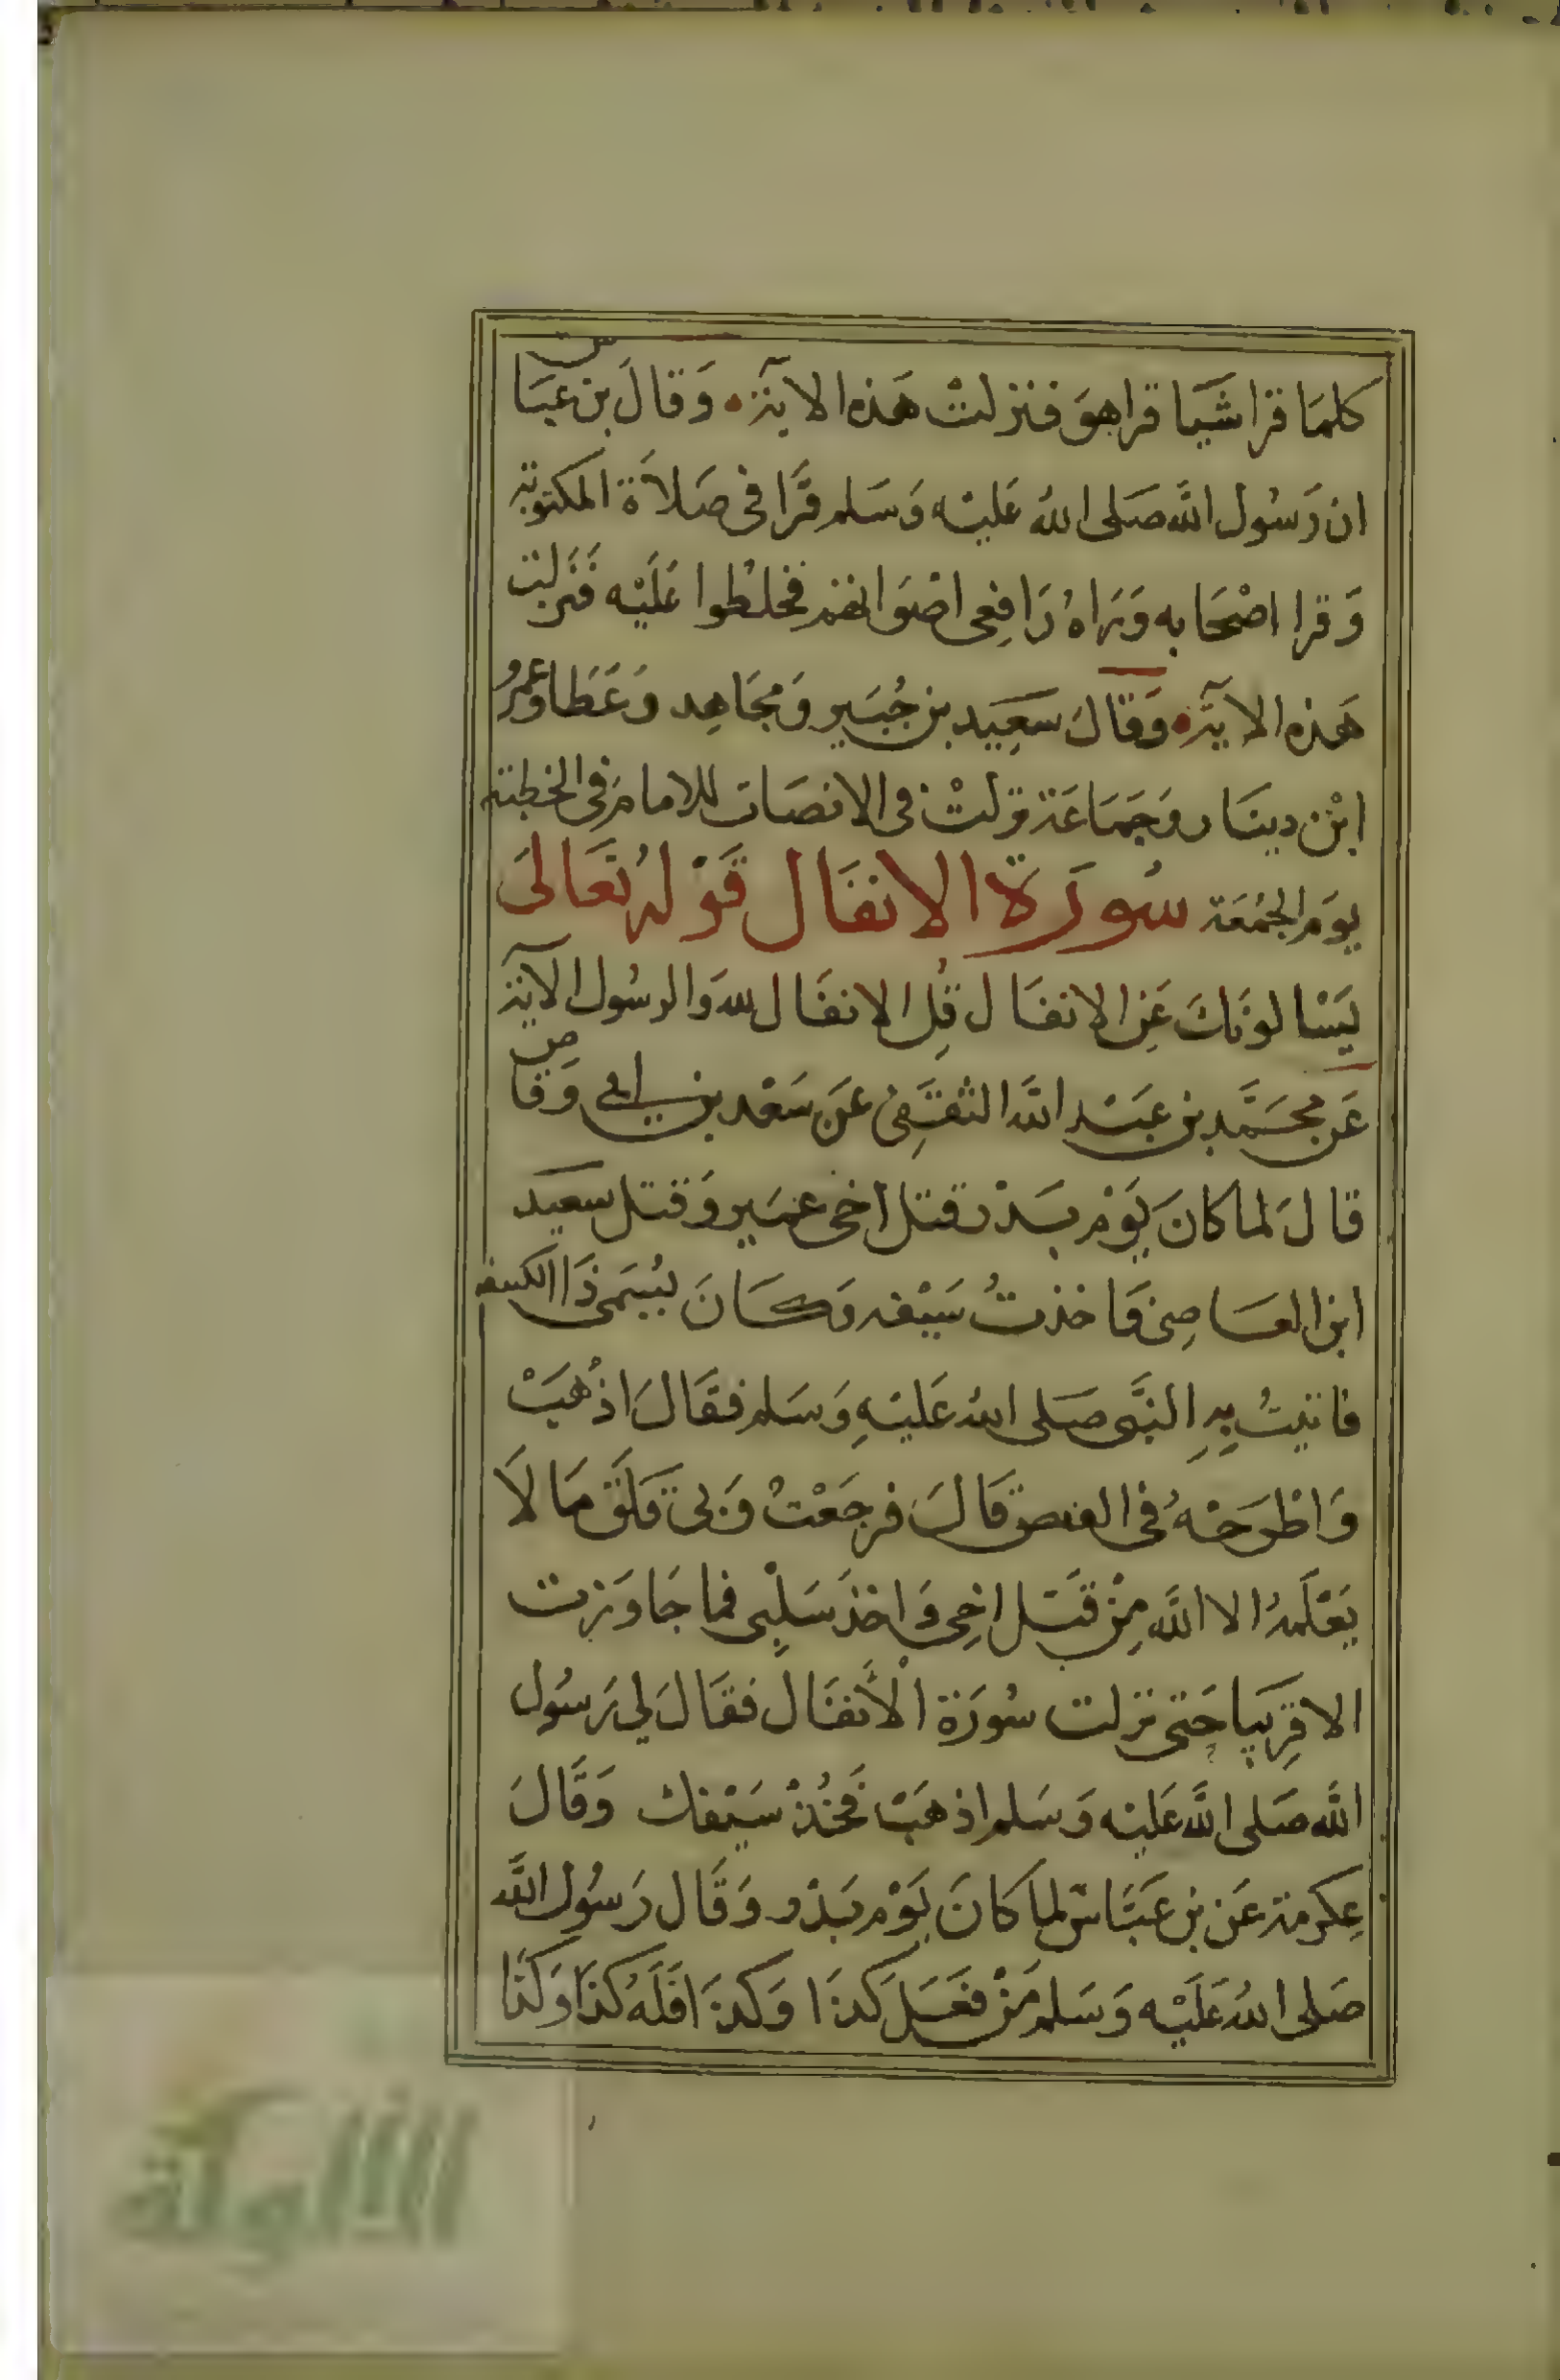 كلما قرا شيا قرا هو فنزلت هذه الاية وقال بن عباس
ان رسول الله صلى الله عليه وسلم قرا في صلاة المكتوبة
وقرا اصحابه وراه رافعى اصواتهم فخلطوا عليه فنزلت
هذه الاية وقال سعيد بن جبير ومجاهد وعطا وعمرو
ابن دينار وجماعة نزلت في الانصات للامام في الخطبة
يوم الجمعة سورة الانفال قوله تعالى
يسالونك عن الانفال قل الانفال لله والرسول الآية
عن محمد بن عبد الله الثقفى عن سعد بن ابي وقاص
قال لما كان يوم بدر قتل اخى عمير وقتل سعيد
ابن العاصى فاخذت سيفه وكان يسمى ذا الكسفه
فاتيت به النبى صلى الله عليه وسلم فقال اذهب
واطرحه في القبض قال فرجعت وبى قلق ما لا
يعلمه الا الله من قتل اخى واخذ سلبى فما جاوزت
الا قريبا حتى نزلت سورة الأنفال فقال لي رسول
الله صلى الله عليه وسلم اذهب فخذ سيفك وقال
عكرمة عن بن عباس لما كان يوم بدر وقال رسول الله
صلى الله عليه وسلم من فعل كذا وكذا فله كذا وكذا
الألوكة